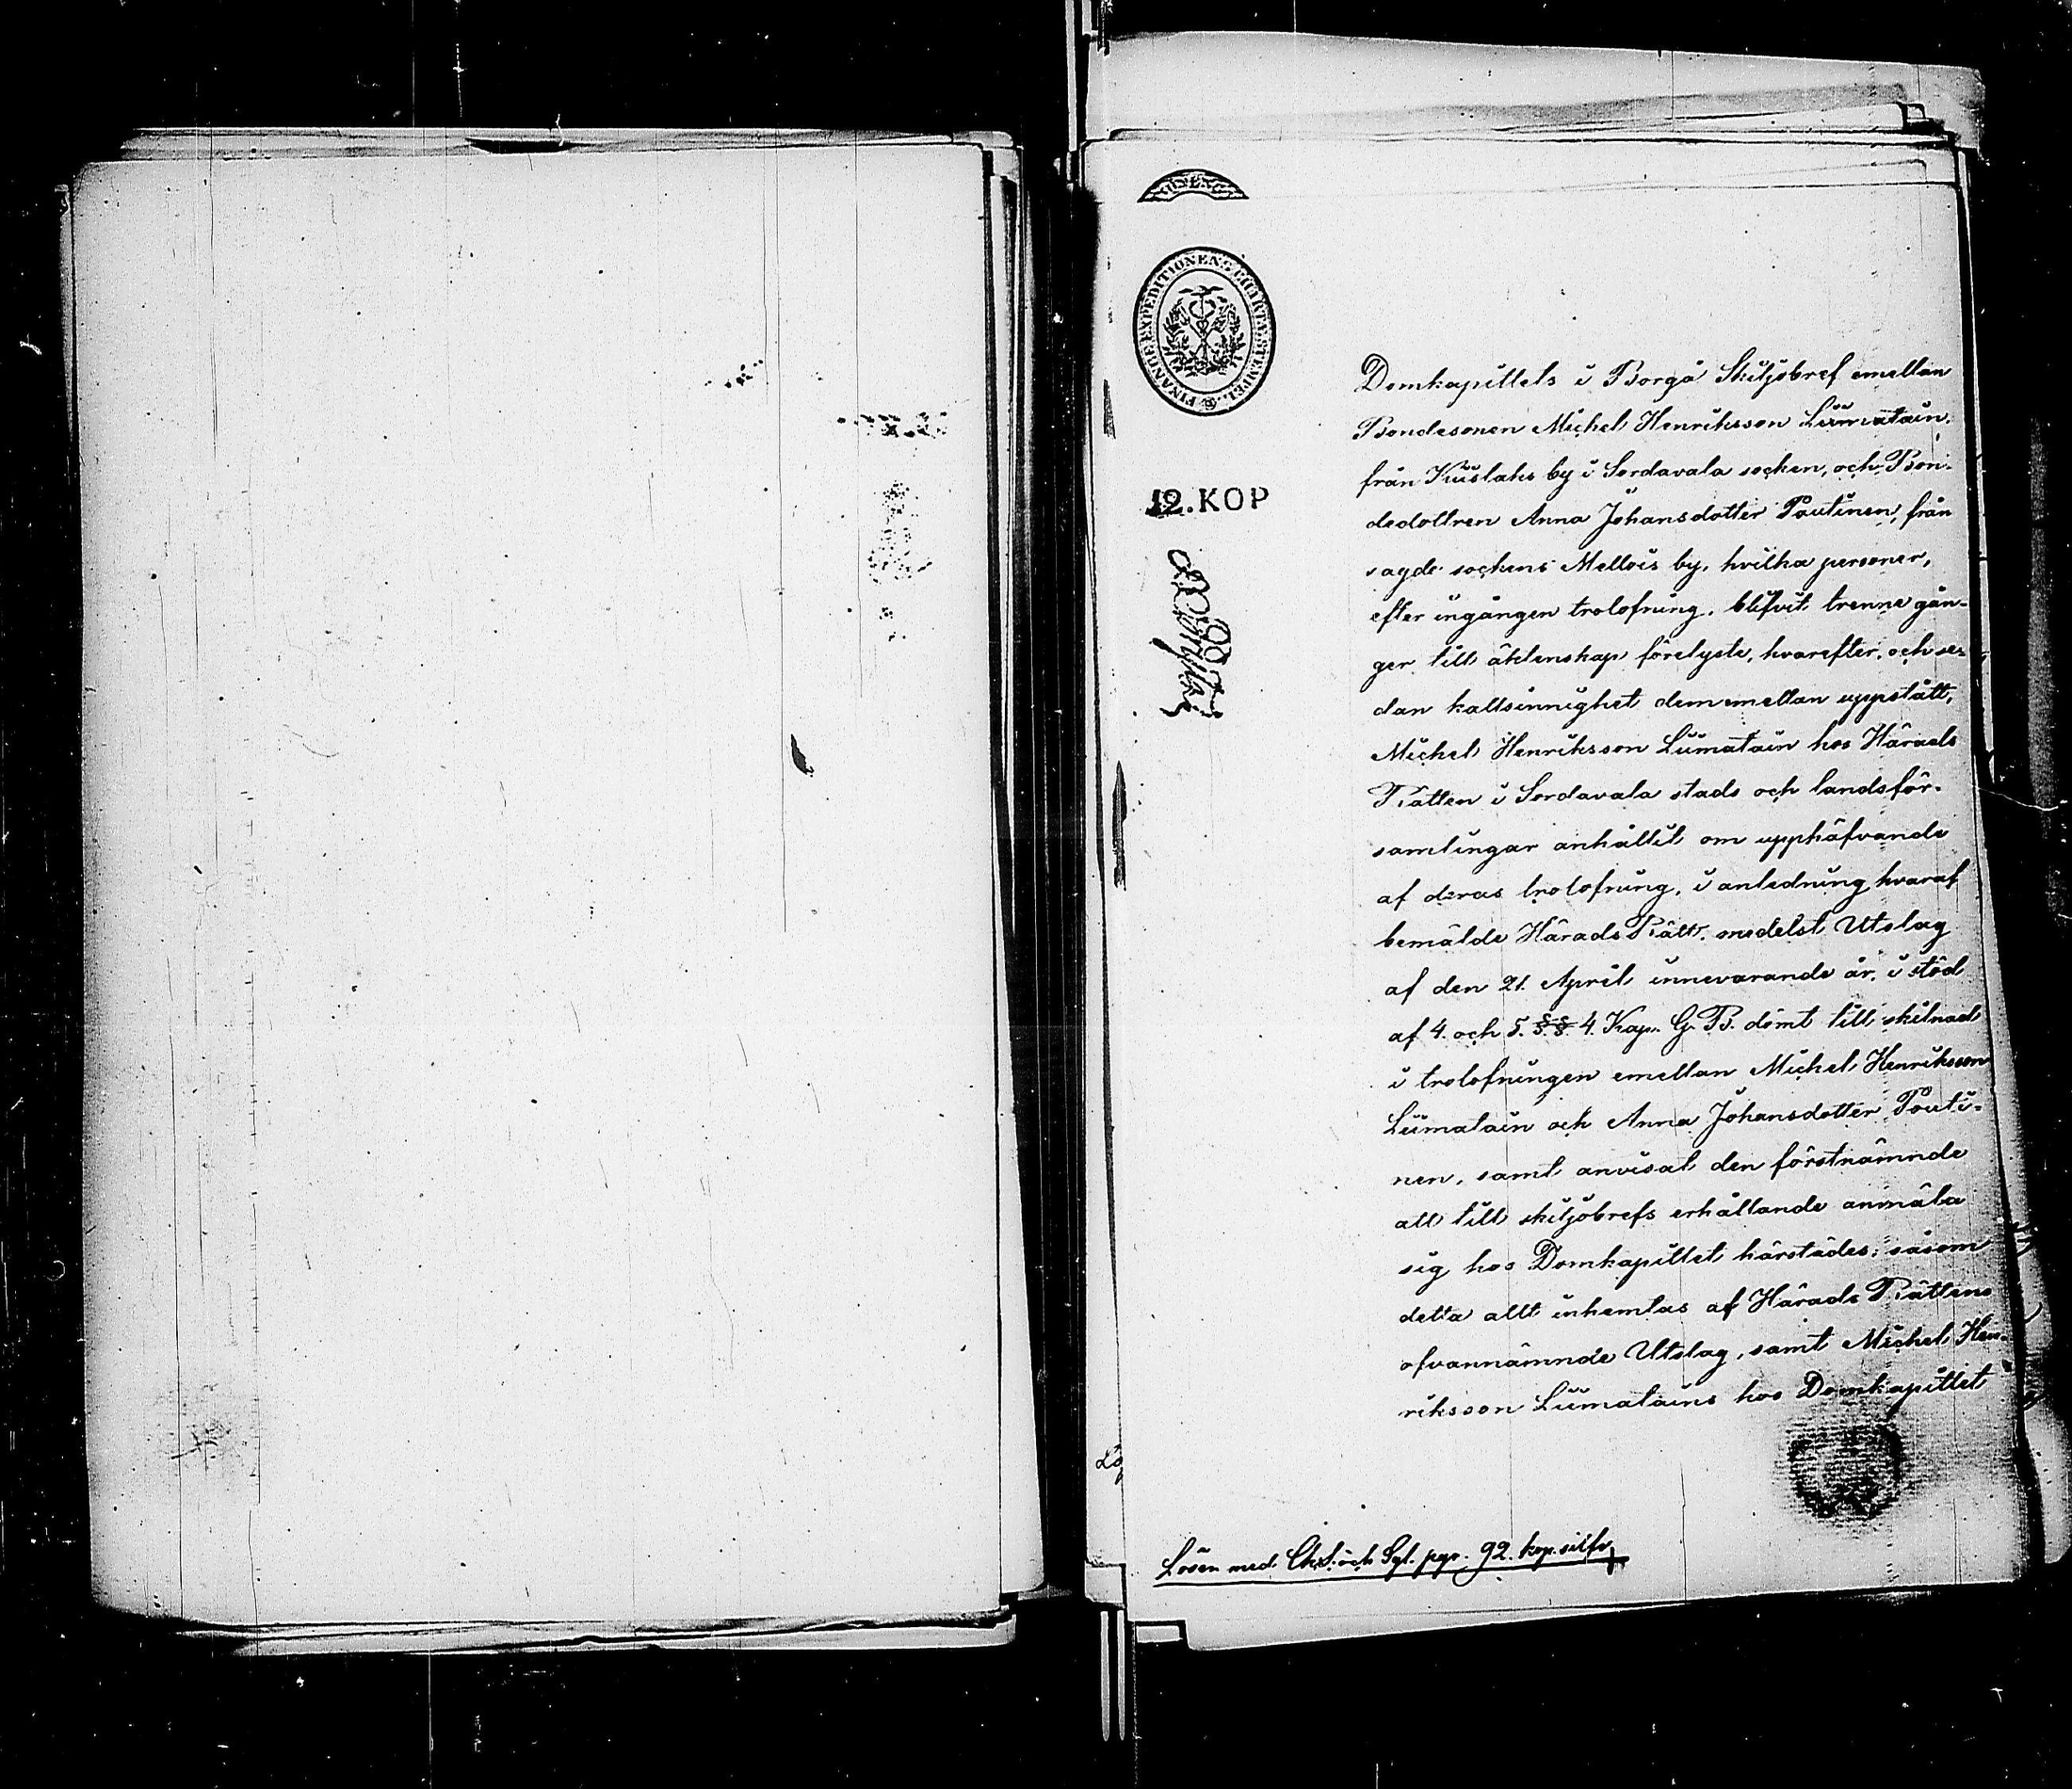 FINANCE EXPEDITIONENS CHARTÆ STEMPEL
12. KOP
Domkapitlets i Borgå Skiljobref emellan
Bondesonen Michel Henriksson Liimatain,
från Kuislaks by i Sordavala socken, och Bon-
dedottren Anna Johansdotter Poutinen, från
sagde sockens Mellois by, hvilka personer,
efter ingången trolofning, blifvit trenne gån-
ger till äktenskap förelyste, hvarefter, och se-
dan kallsinnighet dem emellan uppstått,
Michel Henriksson Liimatain hos Härads
Rätten i Sordavala stads och landsför-
samlingar anhållit om upphäfvande
af deras trolofning, i anledning hvaraf
bemälde Härads Rätt, medelst Utslag
af den 21. April innevarande år, i stöd
af 4. och 5. §.§. 4. Kap. G. B. dömt till skilnad
i trolofningen emellan Michel Henriksson
Liimatain och Anna Johansdotter Pouti-
nen, samt anvisat den förstnämnde
att till skiljobrefs erhållande anmäla
sig hos Domkapitlet härstädes; såsom
detta allt inhemtas af Härads Rättens
ofvannämnde Utslag, samt Michel Hen-
riksson Liimatains hos Domkapitlet
Lösen med Ch. S. och Sgl. ppr. 92. kop. silfv.